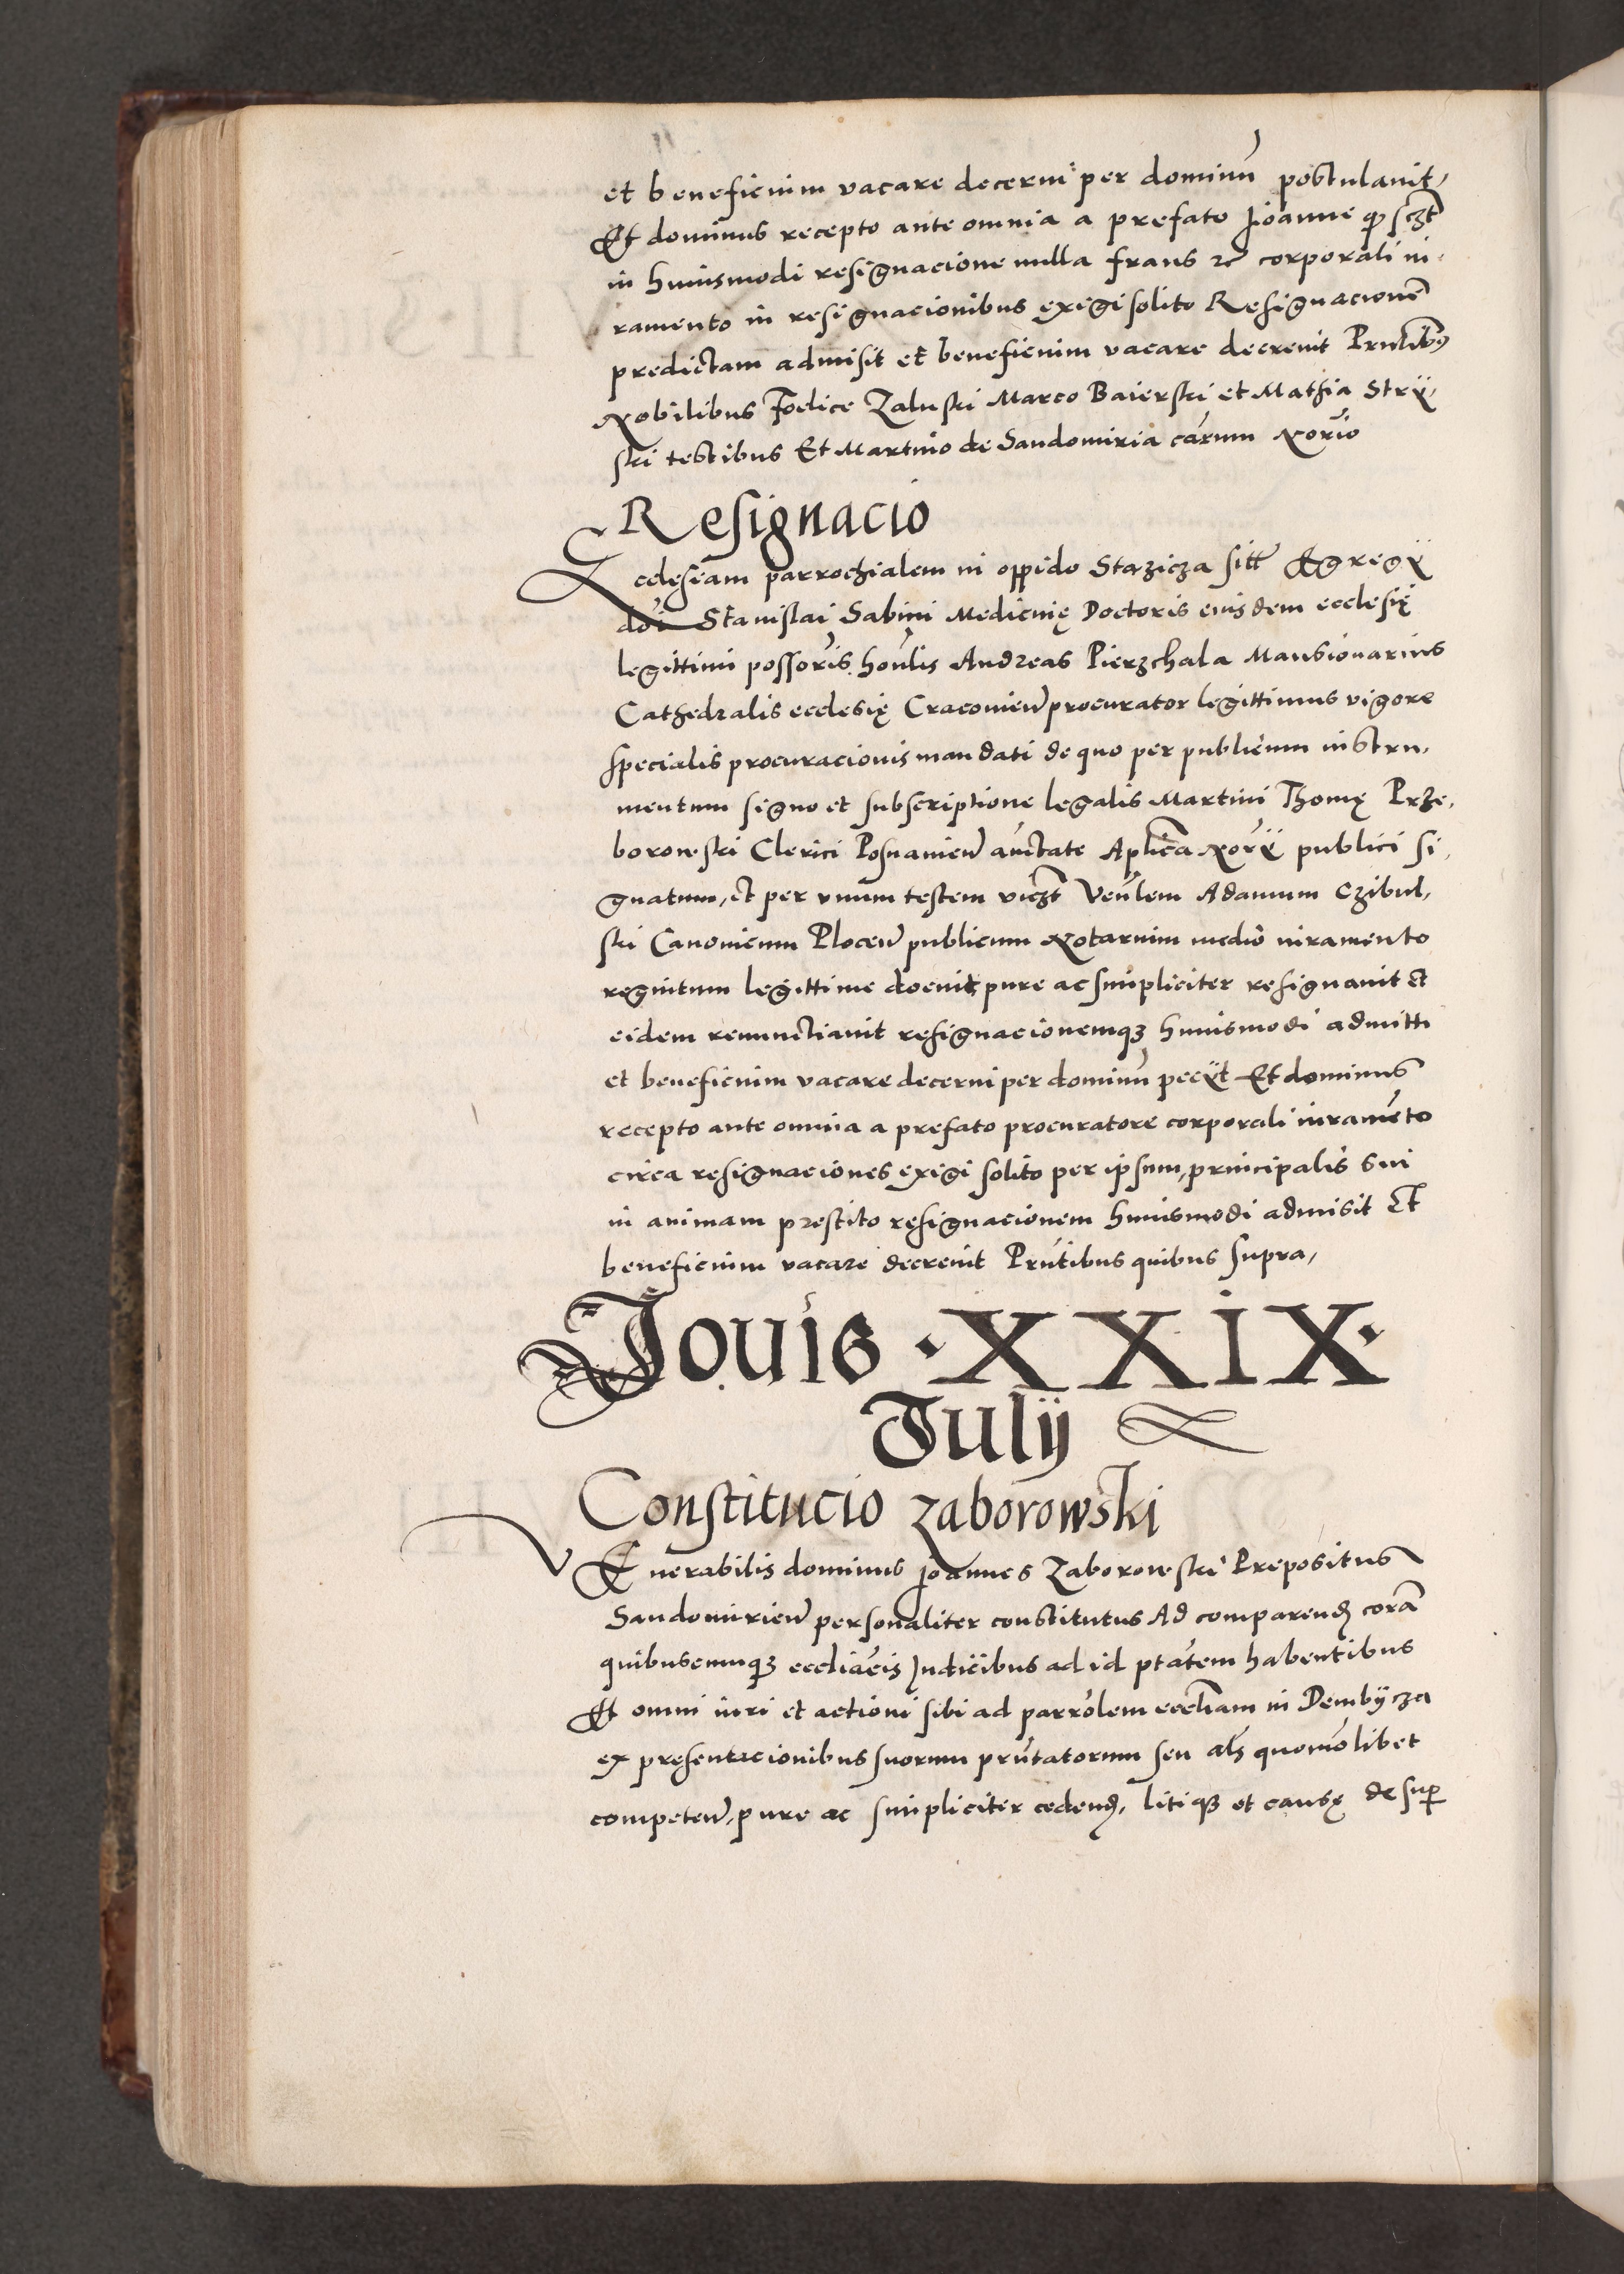 et beneficium vacare decerni per dominū postulavit,
Et dominus recepto ante omnia a prefato Joanne q̄ sczt
in huiusmodi resignacione nulla fraus rc̄ corporali iu,
ramento in resignacionibus exigi solito Resignacionē
predictam admisit et beneficium vacare decrevit Pn̄tibus
Nobilibus Foelice Zaluski Marco Baierski et Mathia Strÿ,
ski testibus Et Martino de Sandomiria car̄um Nor̄io
Resignacio
Ecclesiam parrochialem in oppido Stazicza sitt̄ Egregÿ
dn̄i Stanislai Sabini Medicinę Doctoris eiusdem ecclesię
legittimi possor̄is hon̄lis Andreas Pierzchala Mansionarius
Cathedralis ecclesię Cracovien̄ procurator legittimus vigore
specialis procuracionis mandati de quo per publicum instru,
mentum signo et subscriptione legalis Martini Thomę Prze,
borowski Clerici Posnanien̄ auc̄tate Aplic̄a Nor̄ÿ publici si,
gnatum, et per unum testem viczt Ven̄lem Adamum Czibul,
ski Canonicum Plocen̄ publicum Notarium medio iuramento
regnitum legittime docuit pure ac simpliciter resignavit et
eidem renunctiavit resignacionemqȝ huiusmodi admitti
et beneficium vacare decerni per dominū peciit Et dominus
recepto ante omnia a prefato procuratore corporali iuramēto
circa resignaciones exigi solito per ipsum, principalis sui
in animam prestito resignacionem huiusmodi admisit Et
beneficium vacare decrevit Prn̄tibus quibus supra,
Jovis ·XXIX·
Julÿ
Constitucio Zaborowski
Venerabilis dominus Joannes Zaborowski Prepositus
Sandomirien̄ personaliter constitutus Ad comparend̄ corā
quibuscumqȝ eccliac̄is Judicibus ad id ptātem habentibus
Et omni iuri et actioni sibi ad parrōlem eccliam in Dembÿcza
ex presentacionibus suorum prn̄tatorum seu al̄s quomōlibet
competen̄, pure ac simpliciter cedend̄, litiqȝ et causę desup̄